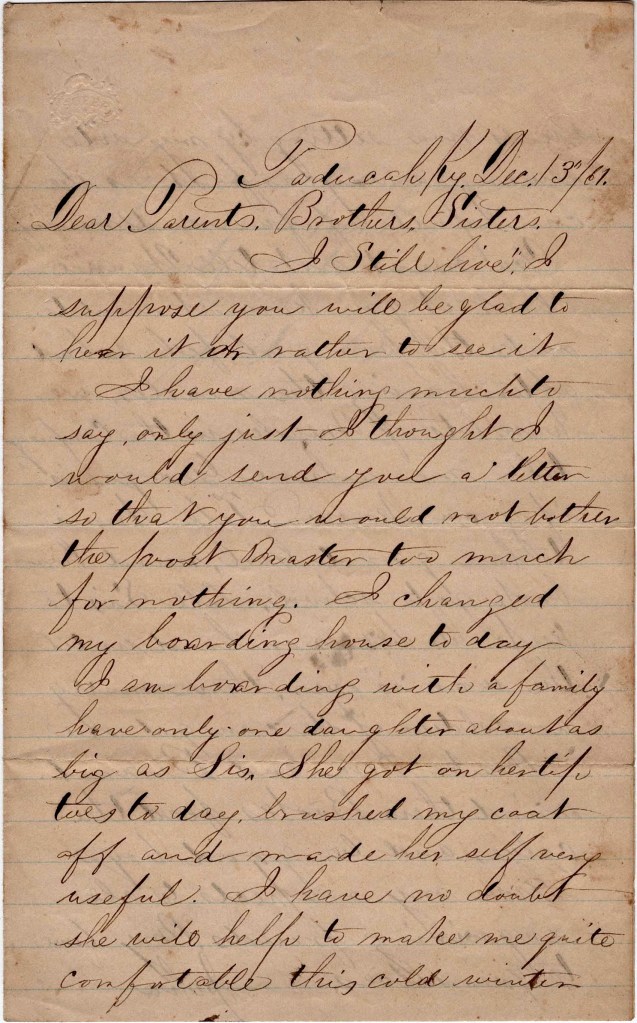 Paducah Ky. Dec. 13th/61.
Dear Parents. Brothers. Sisters.
"I Still live". I
suppose you will be glad to
hear it or rather to see it
I have nothing much to
say, only just I thought I
would send you a letter
so that you would not bother
the post Master too much
for nothing. I changed
my boarding house to day
I am boarding with a family
have only one daughter about as
big as Sis. She got on her tip
toes to day, brushed my coat
off and made her self very
useful. I have no doubt
she will help to make me quite
comfortable this cold winter